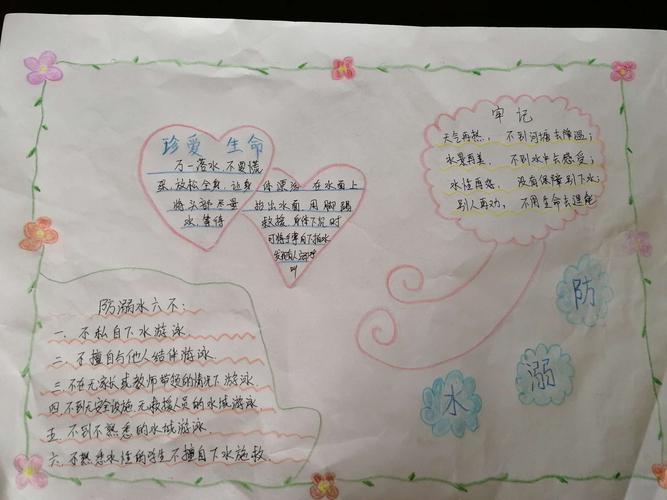 珍爱 生命
万一落水,不要慌
乱,放松全身,让身体漂浮在水面上
将头部尽量抬出水面,用脚踢
水,等待救援,身体下沉时
可将手掌向下拍水
牢记
天气再热, 不到河塘去降温;
水景再美, 不到水中去感受;
水性再好, 没有保障别下水;
别人再劝, 不用生命去逞能
防溺水六不:
一、不私自下水游泳
二、不擅自与他人结伴游泳.
三.不在无家长或教师带领的情况下游泳.
四.不到无安全设施、无救援人员的水域游泳.
五.不到不熟悉的水域游泳.
六.不熟悉水性的学生不擅自下水施救.
防
溺
水